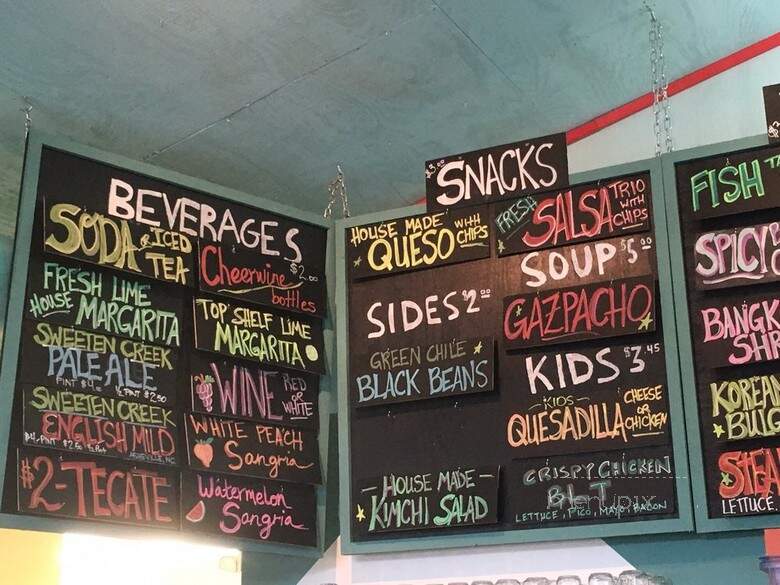 BEVERAGES
SODA & ICED
TEA
Cheerwine
$2.00
bottles
FRESH LIME
HOUSE MARGARITA
TOP SHELF LIME
MARGARITA
SWEETEN CREEK
PALE ALE
PINT $4 ½ PINT $2.50
WINE RED
OR
WHITE
SWEETEN CREEK
ENGLISH MILD
ASHEVILLE, NC
WHITE PEACH
Sangria
$2-TECATE
Watermelon
Sangria
SNACKS
HOUSE MADE WITH
QUESO CHIPS
FRESH SALSA TRIO
WITH
CHIPS
SIDES $2.00
SOUP $5.00
GREEN CHILE
BLACK BEANS
GAZPACHO
KIDS $3.45
-KIDS-
QUESADILLA CHEESE
OR
CHICKEN
-HOUSE MADE-
KIMCHI SALAD
CRISPY CHICKEN
BLT
LETTUCE, PICO, MAYO, BACON
FISH TA
SPICY
BANGK
SHR
KOREAN
BUG
STEA
LETTUCE